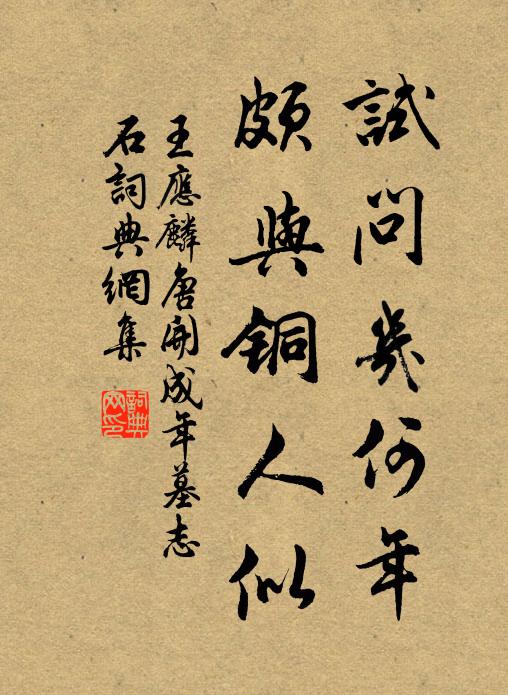 試問幾何年
頗與銅人似
王應麟唐開成年墓志
石詞典網集
詞典
网印